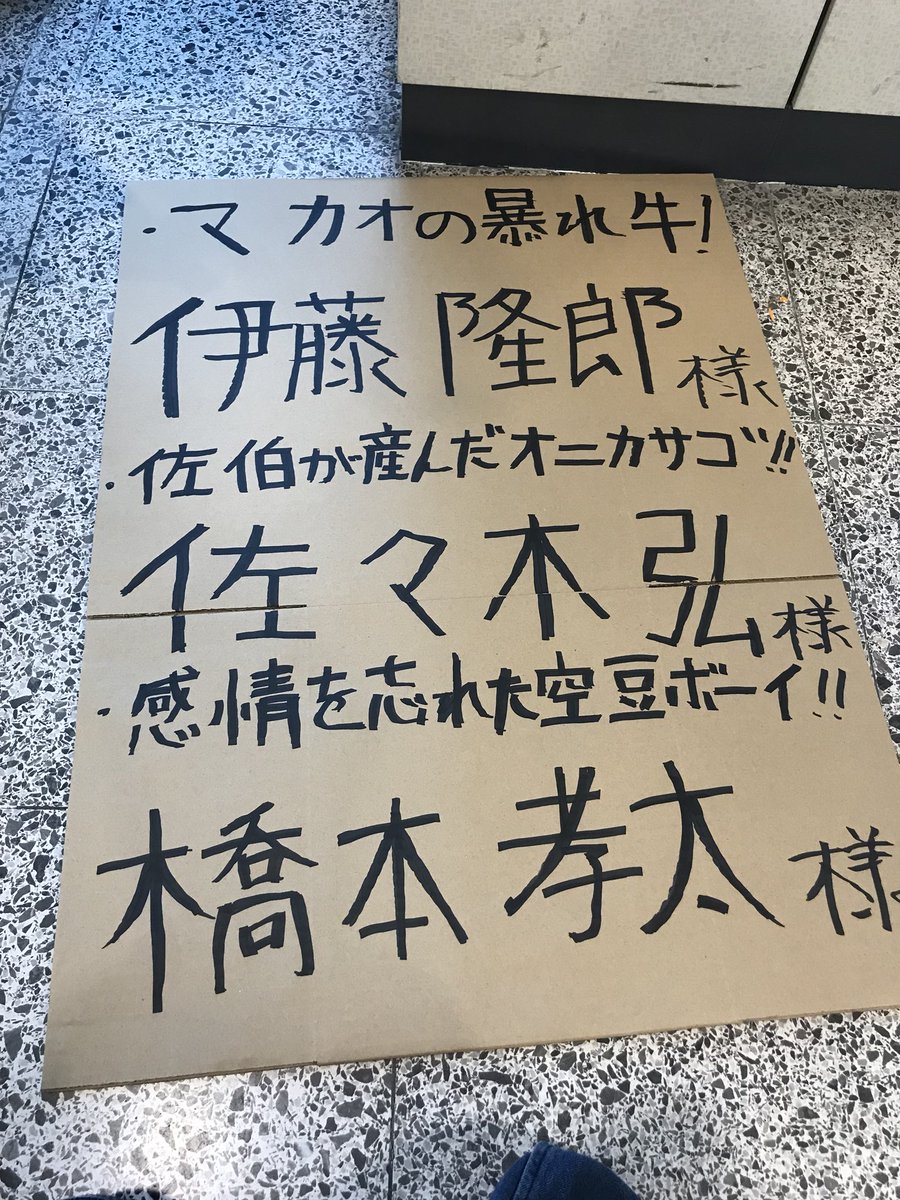 ・マカオの暴れ牛!
伊藤隆郎様
・佐伯が産んだオニカサゴ!!
佐々木弘様
・感情を忘れた空豆ボーイ!!
橋本孝太様